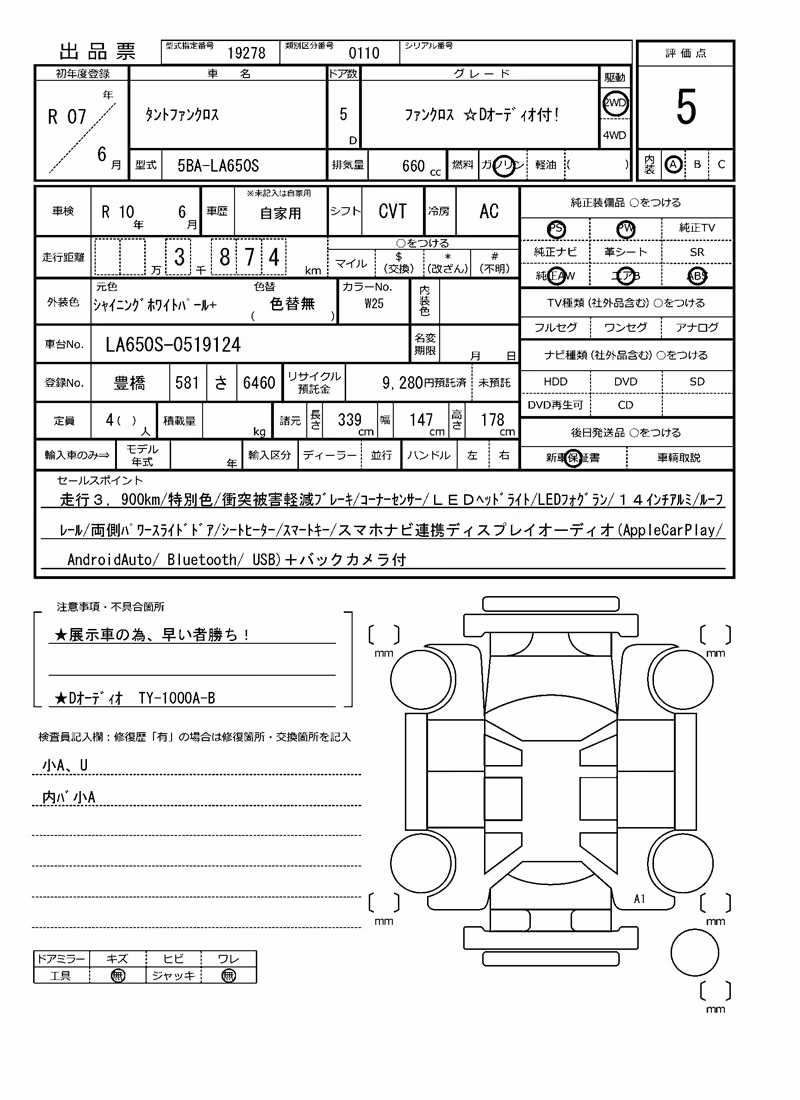 出品票 型式指定番号 19278 類別区分番号 0110 シリアル番号
評価点
5
内装 A B C
初年度登録 車名 ドア数 グレード 駆動
R 07 年 6 月 タントファンクロス 5 D ファンクロス ☆Dオーディオ付! 2WD
4WD
型式 5BA-LA650S 排気量 660 cc 燃料 ガソリン 軽油 ( )
車検 R 10 年 6 月 車歴 ※未記入は自家用 自家用 シフト CVT 冷房 AC
走行距離 万 3 千 8 7 4 km ○をつける
マイル $(交換) *(改ざん) #(不明)
外装色 元色 シャイニングホワイトパール+ 色替 ( 色替無 ) カラーNo. W25 内装色
車台No. LA650S-0519124 名変期限 月 日
登録No. 豊橋 581 さ 6460 リサイクル預託金 9,280円預託済 未預託
定員 4( ) 人 積載量 kg 諸元 長さ 339 cm 幅 147 cm 高さ 178 cm
輸入車のみ⇒ モデル年式 年 輸入区分 ディーラー 並行 ハンドル 左 右
純正装備品 ○をつける
PS PW 純正TV
純正ナビ 革シート SR
純正AW エアB ABS
TV種類(社外品含む)○をつける
フルセグ ワンセグ アナログ
ナビ種類(社外品含む)○をつける
HDD DVD SD
DVD再生可 CD
後日発送品 ○をつける
新車保証書 車輌取説
セールスポイント
走行3,900km/特別色/衝突被害軽減ブレーキ/コーナーセンサー/LEDヘッドライト/LEDフォグラン/14インチアルミ/ルーフ
レール/両側パワースライドドア/シートヒーター/スマートキー/スマホナビ連携ディスプレイオーディオ(AppleCarPlay/
AndroidAuto/ Bluetooth/ USB)+バックカメラ付
注意事項・不具合箇所
★展示車の為、早い者勝ち!
★Dオーディオ TY-1000A-B
検査員記入欄:修復歴「有」の場合は修復箇所・交換箇所を記入
小A、U
内バ小A
ドアミラー キズ ヒビ ワレ
工具 無 ジャッキ 無
mm mm
A1
mm mm
mm